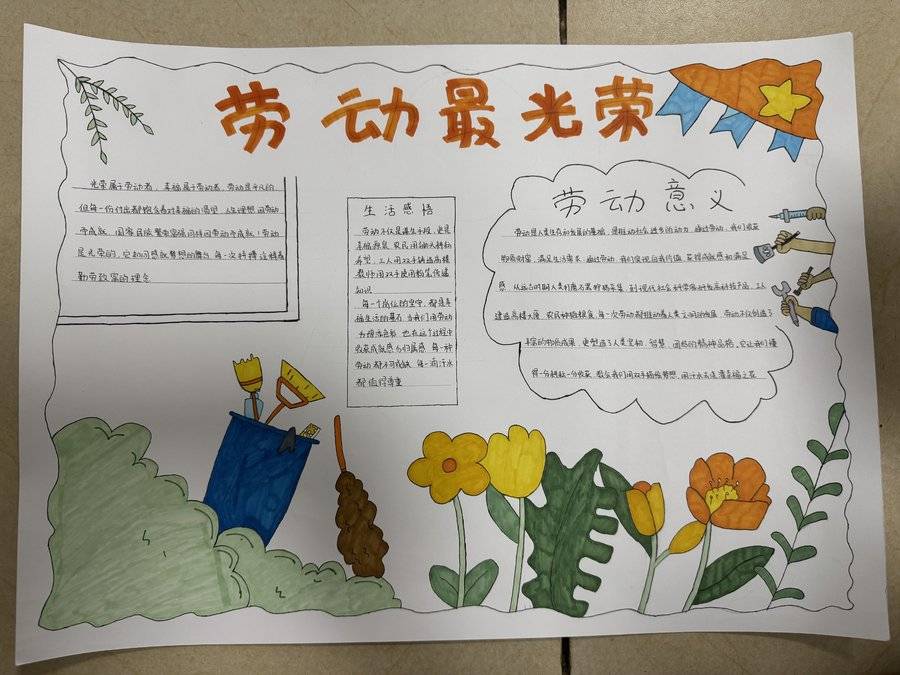 劳动最光荣
光荣属于劳动者，幸福属于劳动者，劳动是平凡的
但每一份付出都饱含着对幸福的渴望，人生理想因劳动
而成就，国家民族繁荣富强同样因劳动而成就！劳动
是光荣的，它如同感兴梦想的舞台，每一次拼搏诠释着
勤劳致富的理念
生活感悟
劳动不仅是谋生手段，更是
幸福源泉，农民用锄头耕耘
希望，工人用双手铸造高楼
教师用双手使用粉笔传递
知识
每一个岗位的坚守，都是幸
福生活的基石，当我们用劳动
为
，也在这个过程中
收获成就感与归属感，每一种
劳动都不可或缺，每一滴汗水
都值得尊重
劳动意义
劳动是人类生存和发展的基础，是推动社会进步的动力，通过劳动，我们收获
物质财富，满足生活需求，通过劳动，我们实现自我价值，获得成就感和满足
感，从远古时期人类打磨石器狩猎采集，到现代社会科学家研发高科技产品，工人
建造高楼大厦，农民种植粮食，每一次劳动都推动着人类文明的发展，劳动不仅创造了
丰富的物质成果，更塑造了人类坚韧、智慧、团结的精神品格，它让我们懂
得一分耕耘一分收获，教会我们用双手描绘梦想，用汗水去浇灌幸福之花